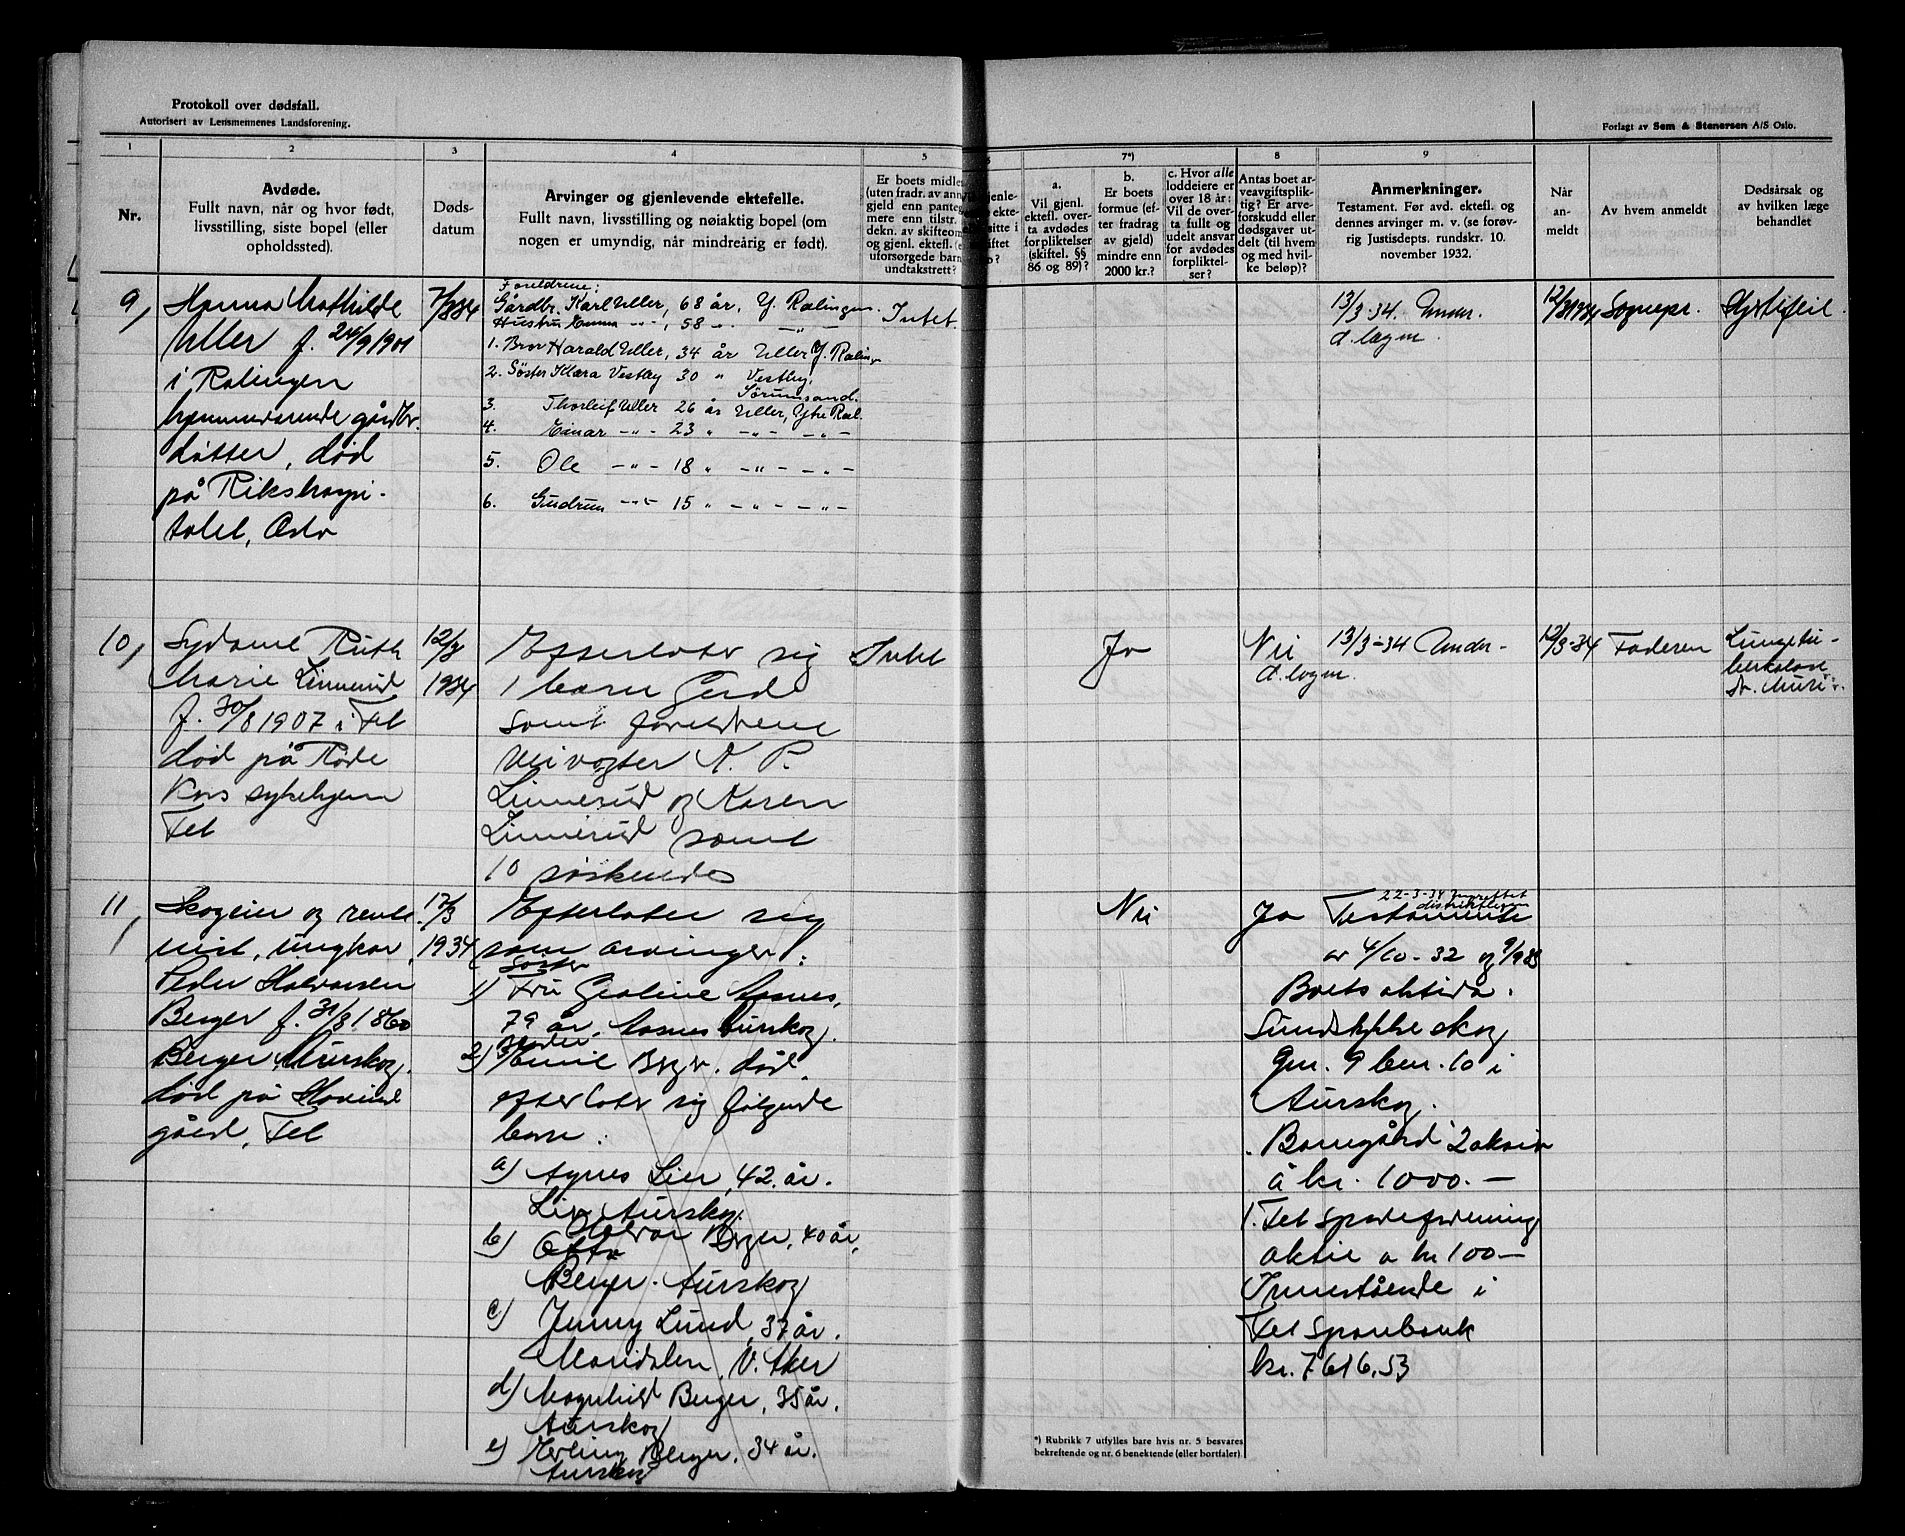 Protokoll over dødsfall.
Autorisert av Lensmennenes Landsforening.
Forlagt av Sem & Stenersen A/S Oslo.
1
2
3
4
5
6
7*)
8
9
Nr.
Avdøde.
Fullt navn, når og hvor født,
livsstilling, siste bopel (eller
opholdssted).
Døds-
datum
Arvinger og gjenlevende ektefelle.
Fullt navn, livsstilling og nøiaktig bopel (om
nogen er umyndig, når mindreårig er født).
Er boets midle
(uten fradr. av ann
gjeld enn pante
mere enn tilstr.
dekn. av skifteom
og gjenl. ektefl. (
uforsørgede barn
undtakstrett?
a.
Vil gjenl.
ektefl. over-
ta avdødes
forpliktelser
(skiftel. §§
86 og 89)?
b.
Er boets
formue (ef-
ter fradrag
av gjeld)
mindre enn
2000 kr.?
c. Hvor alle
loddeiere er
over 18 år:
Vil de over-
ta fullt og
udelt ansvar
for avdødes
forpliktel-
ser?
Antas boet ar-
veavgiftsplik-
tig? Er arve-
forskudd eller
dødsgaver ut-
delt (til hvem
og med hvil-
ke beløp)?
Anmerkninger.
Testament. Før avd. ektefl. og
dennes arvinger m. v. (se forøv-
rig Justisdepts. rundskr. 10.
november 1932.
Når
an-
meldt
Av hvem anmeldt
Dødsårsak og
av hvilken læge
behandlet
9,
Hanna Mathilde
Uller f. 24/9 1901
i Rælingen
hjemmeværende gårdbr.
datter, død
på Rikshospi-
talet, Oslo
Foreldrene:
Gårdbr. Karl Uller, 68 år, Y. Rælingen
Hustru Emma -"-, 58 -"-
1. Bror Harald Uller, 34 år Uller Y. Ræling
2. Søster Klara Vestby 30 " Vestby,
Sørumsand.
3. Thorleif Uller 26 år Uller, Ytre Ræl.
4. Einar -"- 23 " -"- -"-
5. Ole -"- 18 " -"- -"-
6. Gudrun -"- 15 " -"- -"-
Intet
13/3-34. Under.
d. lagm.
12/3 1934
Sognepr.
Hjertefeil.
10,
Sydame Ruth
Marie Linnerud
f. 30/8 1907 i Fet
død på Røde
Kors sykehjem
Fet
12/3
1934
Efterlater sig
1 barn Gerd
samt foreldrene
Veivogter K. P.
Linnerud og Karen
Linnerud samt
10 søskende
Intet
Ja
Nei
13/3-34 Under-
d. lagm.
12/3-34
Faderen
Lungetu-
berkulose
11,
Skogeier og rente-
nist, ungkar,
Peder Halvorsen
Berger f. 31/3 1860
Berger, Aurskog.
død på Hovind
gård, Fet
17/3
1934
Efterlater sig
som arvinger:
Søster
1) Fru Geoline Aasnes,
79 år, Aasnes Aurskog.
Broder
2) Emil Berger. død.
efterlater sig følgende
barn:
a) Agnes Lier, 42. år.
Lier Aurskog.
b) Halvor Berger, 40 år,
Berger. Aurskog
c) Jenny Lund, 37 år.
Maridalen, V. Aker
d) Magnhild Berger, 35 år.
Aurskog
e) Erling Berger, 34 år.
Aurskog
Nei
Ja
22-3-34
Testamente
av 4/10-32 og 9/9 33
Boets aktiva.
Sundslykke skog
gnr. 9 bnr. 10 i
Aurskog.
å kr. 1000.-
1. Fet Spareforening
aktie a kr 100-
Innestående i
Fet Sparebank
kr. 7616,53
*) Rubrikk 7 utfylles bare hvis nr. 5 besvares
bekreftende og nr. 6 benektende (eller bortfaler).